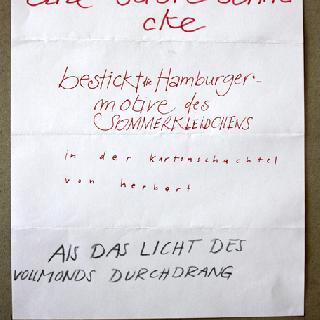 cke
bestickte Hamburger-
motive des
SOMMERKLEIDCHENS
in der kartonschachtel
von herbert
Als DAS LICHT DES
VOLLMONDS DURCHDRANG